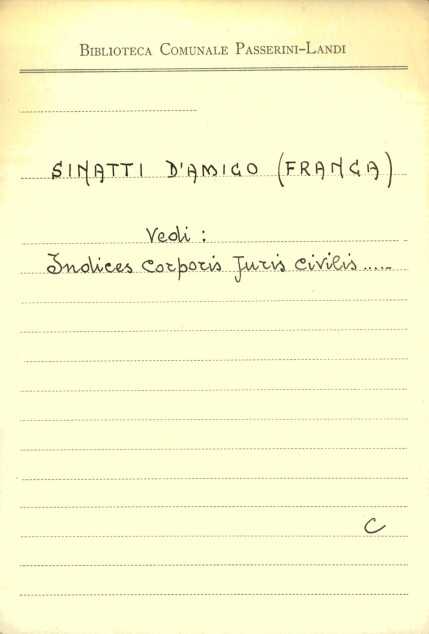 BIBLIOTECA COMUNALE PASSERINI-LANDI
SINATTI D'AMICO (FRANCA)
Vedi :
Indices corporis Juris civilis .....
C